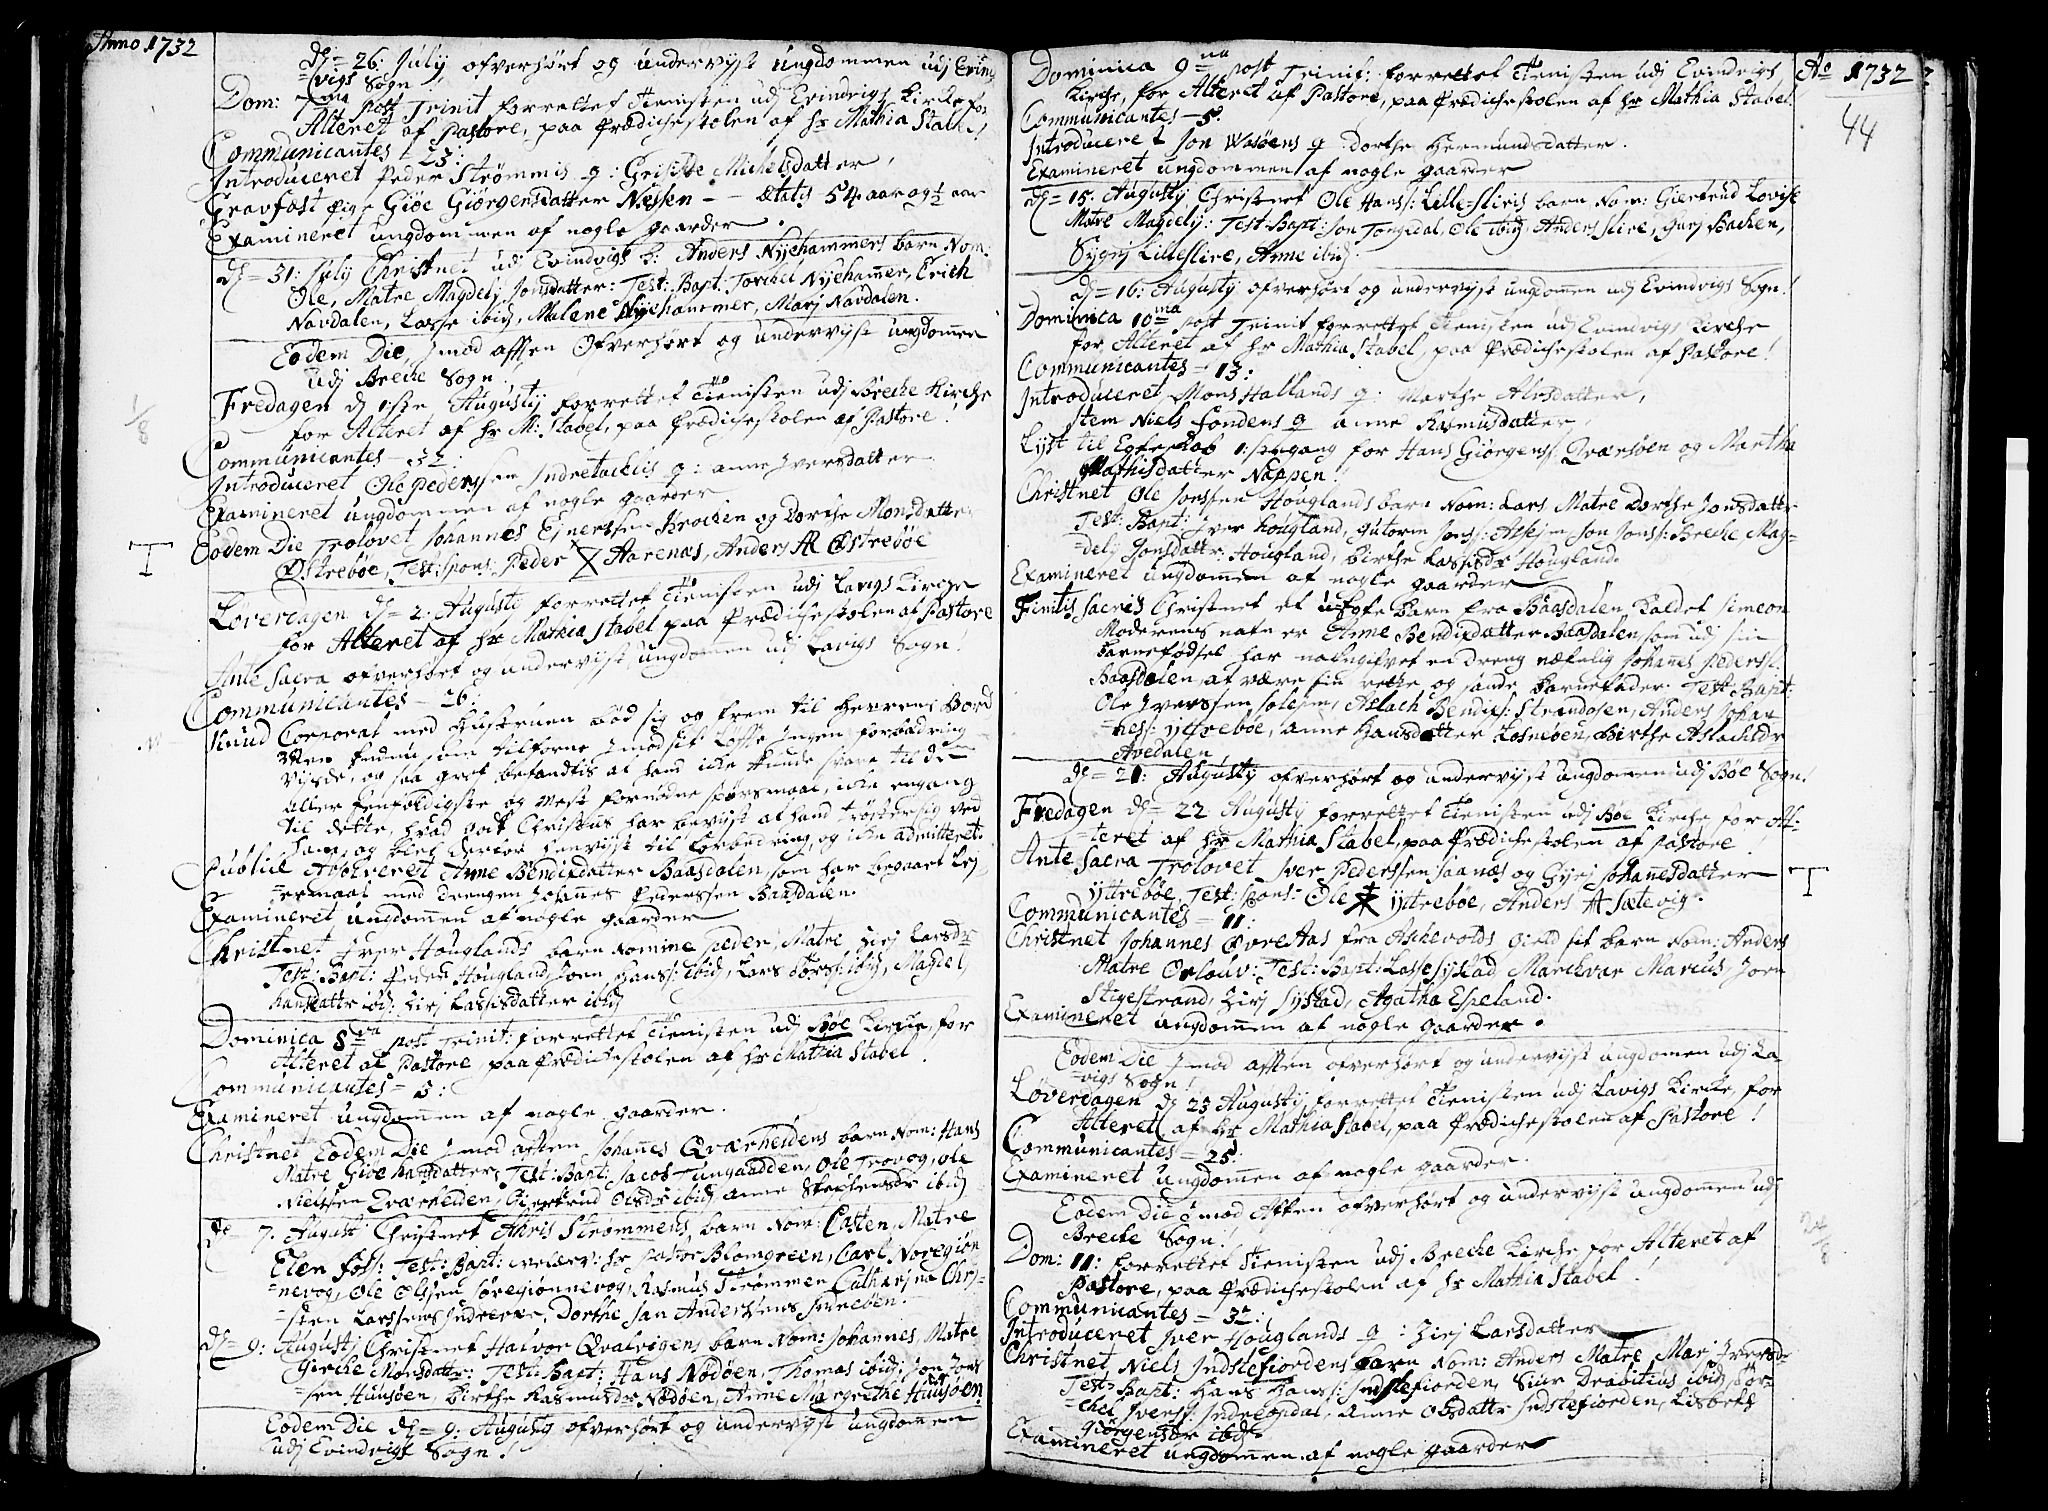 Anno 1732
dn = 26: July, ofverhørt og underviist ungdommen udj Evind
= vigs Sogn
Dom: 7ma post Trinit forrettet Tienisten udj Evindvigs Kircke for
Alteret af Pastore, paa Prædickestolen af hr Mathia Stabel
Communicantes = 23:
Introduceret Peder Strømmis q: Grisilde Michelsdatter,
Gravfæst Pige Giøe Giørgensdatter Niessen - - Ætatis 54 aar og ½ aar
Examineret ungdommen af nogle gaarder.
dn = 31: July Christnet udj Evindvigs k: Anders Nyehammers barn Nom:
Ole, Matre Magdelj Jonsdatter: Test: Bapt: Torchel Nyehamer, Erich
Navdalen, Lasse ibid, Malene Nyehammer, Marj Navdalen.
Eodem Die, J mod afften Ofverhørt og underviist ungdommen
udj Brecke Sogn.
1/8
Fredagen d 1:ste Augustij forrettet Tienisten udj Brecke Kircke
for Alteret af hr M: Stabel, paa Prædickestolen af Pastore!
Communicantes = 32:
Introduceret Ole Pederssen Indretacklis q: anne Jversdatter
Examineret ungdommen af nogle gaarder
Eodem Die Trolovet Johannes Ejnerssen Brocken og Dorthe Monsdatter
T
Østrebøe, Test: spons: Peder X Aarenæs, Anders AR Østrebøe
Løverdagen dn = 2: Augustij forrettet Tienisten udj Lavigs Kircke
for Alteret af hr Mathia Stabel paa Prædickestolen af Pastore
Ante Sacra ofverhørt og underviist ungdomen udj Lavigs Sogn!
Communicantes = 26:
Knud Corporal med Hustruen bød sig og frem til Herrens Bord
Men endnu som tilforne J mod sit Løffte Jngen forbedring
viisde, og saa grof befandtis at hand icke kunde svare til de
aller Eenfoldigste og mest fornødne spørsmaal, icke engang
til dette, hvad godt Christus har beviist at hand trøster sig ved
ham, og blef derfor henviist til forbedring, og icke admitteret.
Publicè Absolveret Anne Bendixdatter Baasdalen, som har begaaet Lej-
= ermaal med drengen Johannes Pederssen Baasdalen.
Examineret ungdommen af nogle gaarder
Christnet Jver Houglands barn Nomine Peder, Matre Zirj Larsdr
Test: Bapt: Peder Hougland, Joen Hanss: ibid, Lars Larss: ibid, Magdel
Hansdattr ibid: Zirj Lassisdatter ibid
Dominica 8va post Trinit: forrettet Tienisten udj Bøe Kircke, for
Alteret af Pastore, paa Prædickestolen af hr Mathia Stabel.
Communicantes = 3:
Examineret ungdommen af nogle gaarder.
Christnet Eodem Die J mod afften Johanes Qværheidens barn Nom: Hans
Matre Giøe Hansdatter, Test: Bapt: Jacob Tungaadden, Ole Trovog, Ole
Nielssen Qværheiden, Giertrud Olsdr ibid, anne Stephensdr ibid
dn = 7. August Christnet Ahris Strømmens barn Nom: Casten, Matre
Elen Foss: Test: Bapt: hr Pastor Blomgreen, Carl Noregiøn
= nevog, Ole Olssen Søregiønnevog, Rasmus Strømmen Catharina Chri-
= sten Larssens Indreere, Dorthe Jan Anderssens
dn = 9: Augustj Christnet Halvor Qvalvigens barn Nom: Johannes, Matre
Giriche Monsdatter: Test: Bapt: Hans Nødøen, Thomas ibid, Jon Jons
= sen Huusøen, Birthe Rasmusdr Nødøen, Anne Margrethe Huusøen
Eodem Die dn = 9: Augustij ofverhørt og underviist ungdommen
udj Evindvigs Sogn!
Ao 1732
44
Dominica 9na post Trinit: forrettet Tienisten udj Evindvigs
Kircke, for Alteret af Pastore, paa Prædickestolen af hr Mathia Stabel.
Communicantes = 5.
Introduceret Jon Wasøens q Dorthe Hermundsdatter.
Examineret ungdommen af nogle gaarder
dn = 15: Augustij Christnet Ole Hanss: Lille-sliris barn Nom: Giertrud Lovise
Matre Magdelj: Test: Bapt: Jon Tongedal, Ole ibid, Anders slire, Gurj Backen,
Sygnj Lilleslire, Anne ibid.
dn = 16: Augustij ofverhørt og underviist ungdomen udj Evindvigs Sogn!
Dominica 10ma post Trinit forrettet Tienisten udj Evindvigs Kircke
for Alteret af hr Mathia Stabel, paa Prædickestolen af Pastore!
Communicantes = 13:
Introduceret Mons Hallands q: Marthe Alvsdatter,
Item Niels Fondens q anne Rasmusdatter,
Lyst til Egteskab 1:ste gang for Hans Giørgenss: Qværsøen og Martha
Mathisdatter Nappen!
Christnet Ole Jonssen Houglands barn Nom: Lars Matre Dorthe Jonsdattr
Test: Bapt: Jver Hougland, Gutorm Jonss: Jon Jonss: Brecke Mag-
= delj Jonsdatter Hougland, Birthe Lassisdr Hougland.
Examineret ungdomen af nogle gaarder
Finitis Sacris Christnet et u-Egte barn fra Baasdalen, kaldet Simeon
Moderens nafn er Anne Bendixdatter Baasdalen, som udj sin
barnefødsel har nafngifvet en dreng næfnlig Johanes Pederss:
Baasdalen, at være sin rette og sande barnefader. Test: Bapt:
Ole Jverssen solejm, Aslach Bendixs: Strandosen, Anders Johan
= nes: yttrebøe, anne Hansdatter Losnøen, Birthe Aslachsdr
Avedalen
dn = 21: Augustij ofverhørt og underviist ungdomen udj Bøe Sogn!
Fredagen dn = 22 Augustij forrettet Tienisten udj Bøe Kircke, for Al-
= teret af hr Mathia Stabel, paa Prædickestolen af Pastore
Ante Sacra Trolovet Jver Pederssen saanæs og Gyrj Johannesdatter
T
yttrebøe Test: spons: Ole X yttrebøe, Anders A Sætevig.
Communicantes = 11:
Christnet Johannes Øvre Aas fra Aschevolds gield sit barn Nom: Anders
Matre Orlouv: Test: Bapt: Lasse Systad, Marckvar Marcus, Joen
Stigestrand, Zirj Systad, Agatha Espeland.
Examineret ungdommen af nogle gaarder.
Eodem Die J mod afften ofverhørt og underviist ungdomen udj La-
= vigs Sogn!
Løverdagen d 23 Augustij forrettet Tienisten udj Lavigs Kircke, for
Alteret af hr Mathia Stabel, paa Prædickestolen af Pastore!
Communicantes = 25:
Examineret ungdomen af nogle gaarder.
Eodem Die J mod Aften ofverhørt og underviist ungdommen udj
Brecke Sogn!
24/8
Dom: 11: forrettet Tienisten udj Brecke Kircke for Alteret af
Pastore, paa Prædickestolen af hr Mathia Stabel!
Communicantes = 32:
Introduceret Jver Houglands q: Zirj Larsdatter
Christnet Niels Indstefiordens barn Nom: Anders Matre Marj Jversdr
Test: Bapt: Hans Hanss: Indstefiorden, Siur Drabitius ibid, Tor-
= chel Jverss: Indreopdal, Anne Olsdattr Indstefiorden, Lisbeth
Giørgensdr ibid.
Examineret ungdommen af nogle gaarder